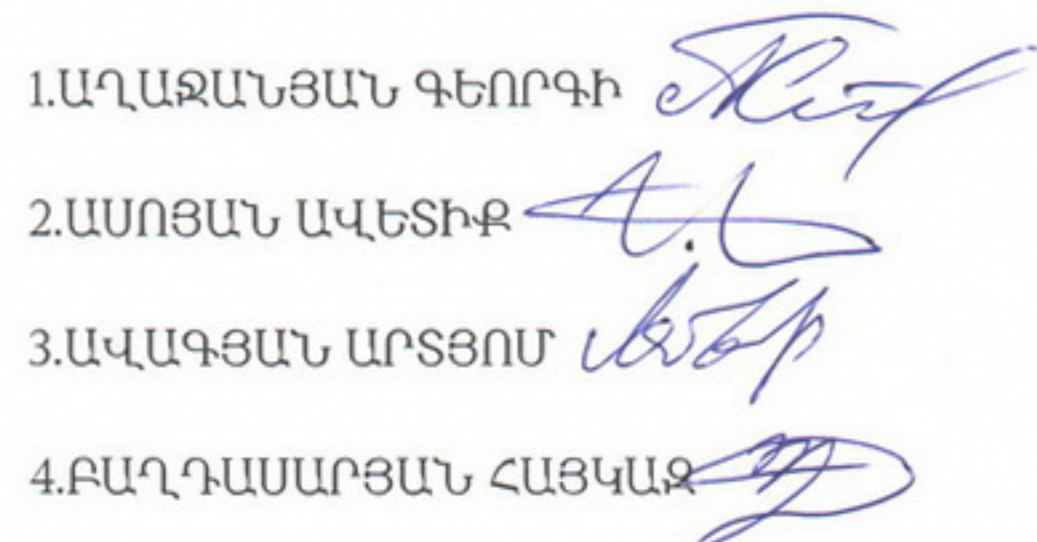 1.ԱՂԱՋԱՆՅԱՆ ԳԵՈՐԳԻ
2.ԱՍՈՅԱՆ ԱՎԵՏԻՔ
3.ԱՎԱԳՅԱՆ ԱՐՏՅՈՄ
4.ԲԱՂԴԱՍԱՐՅԱՆ ՀԱՅԿԱԶ